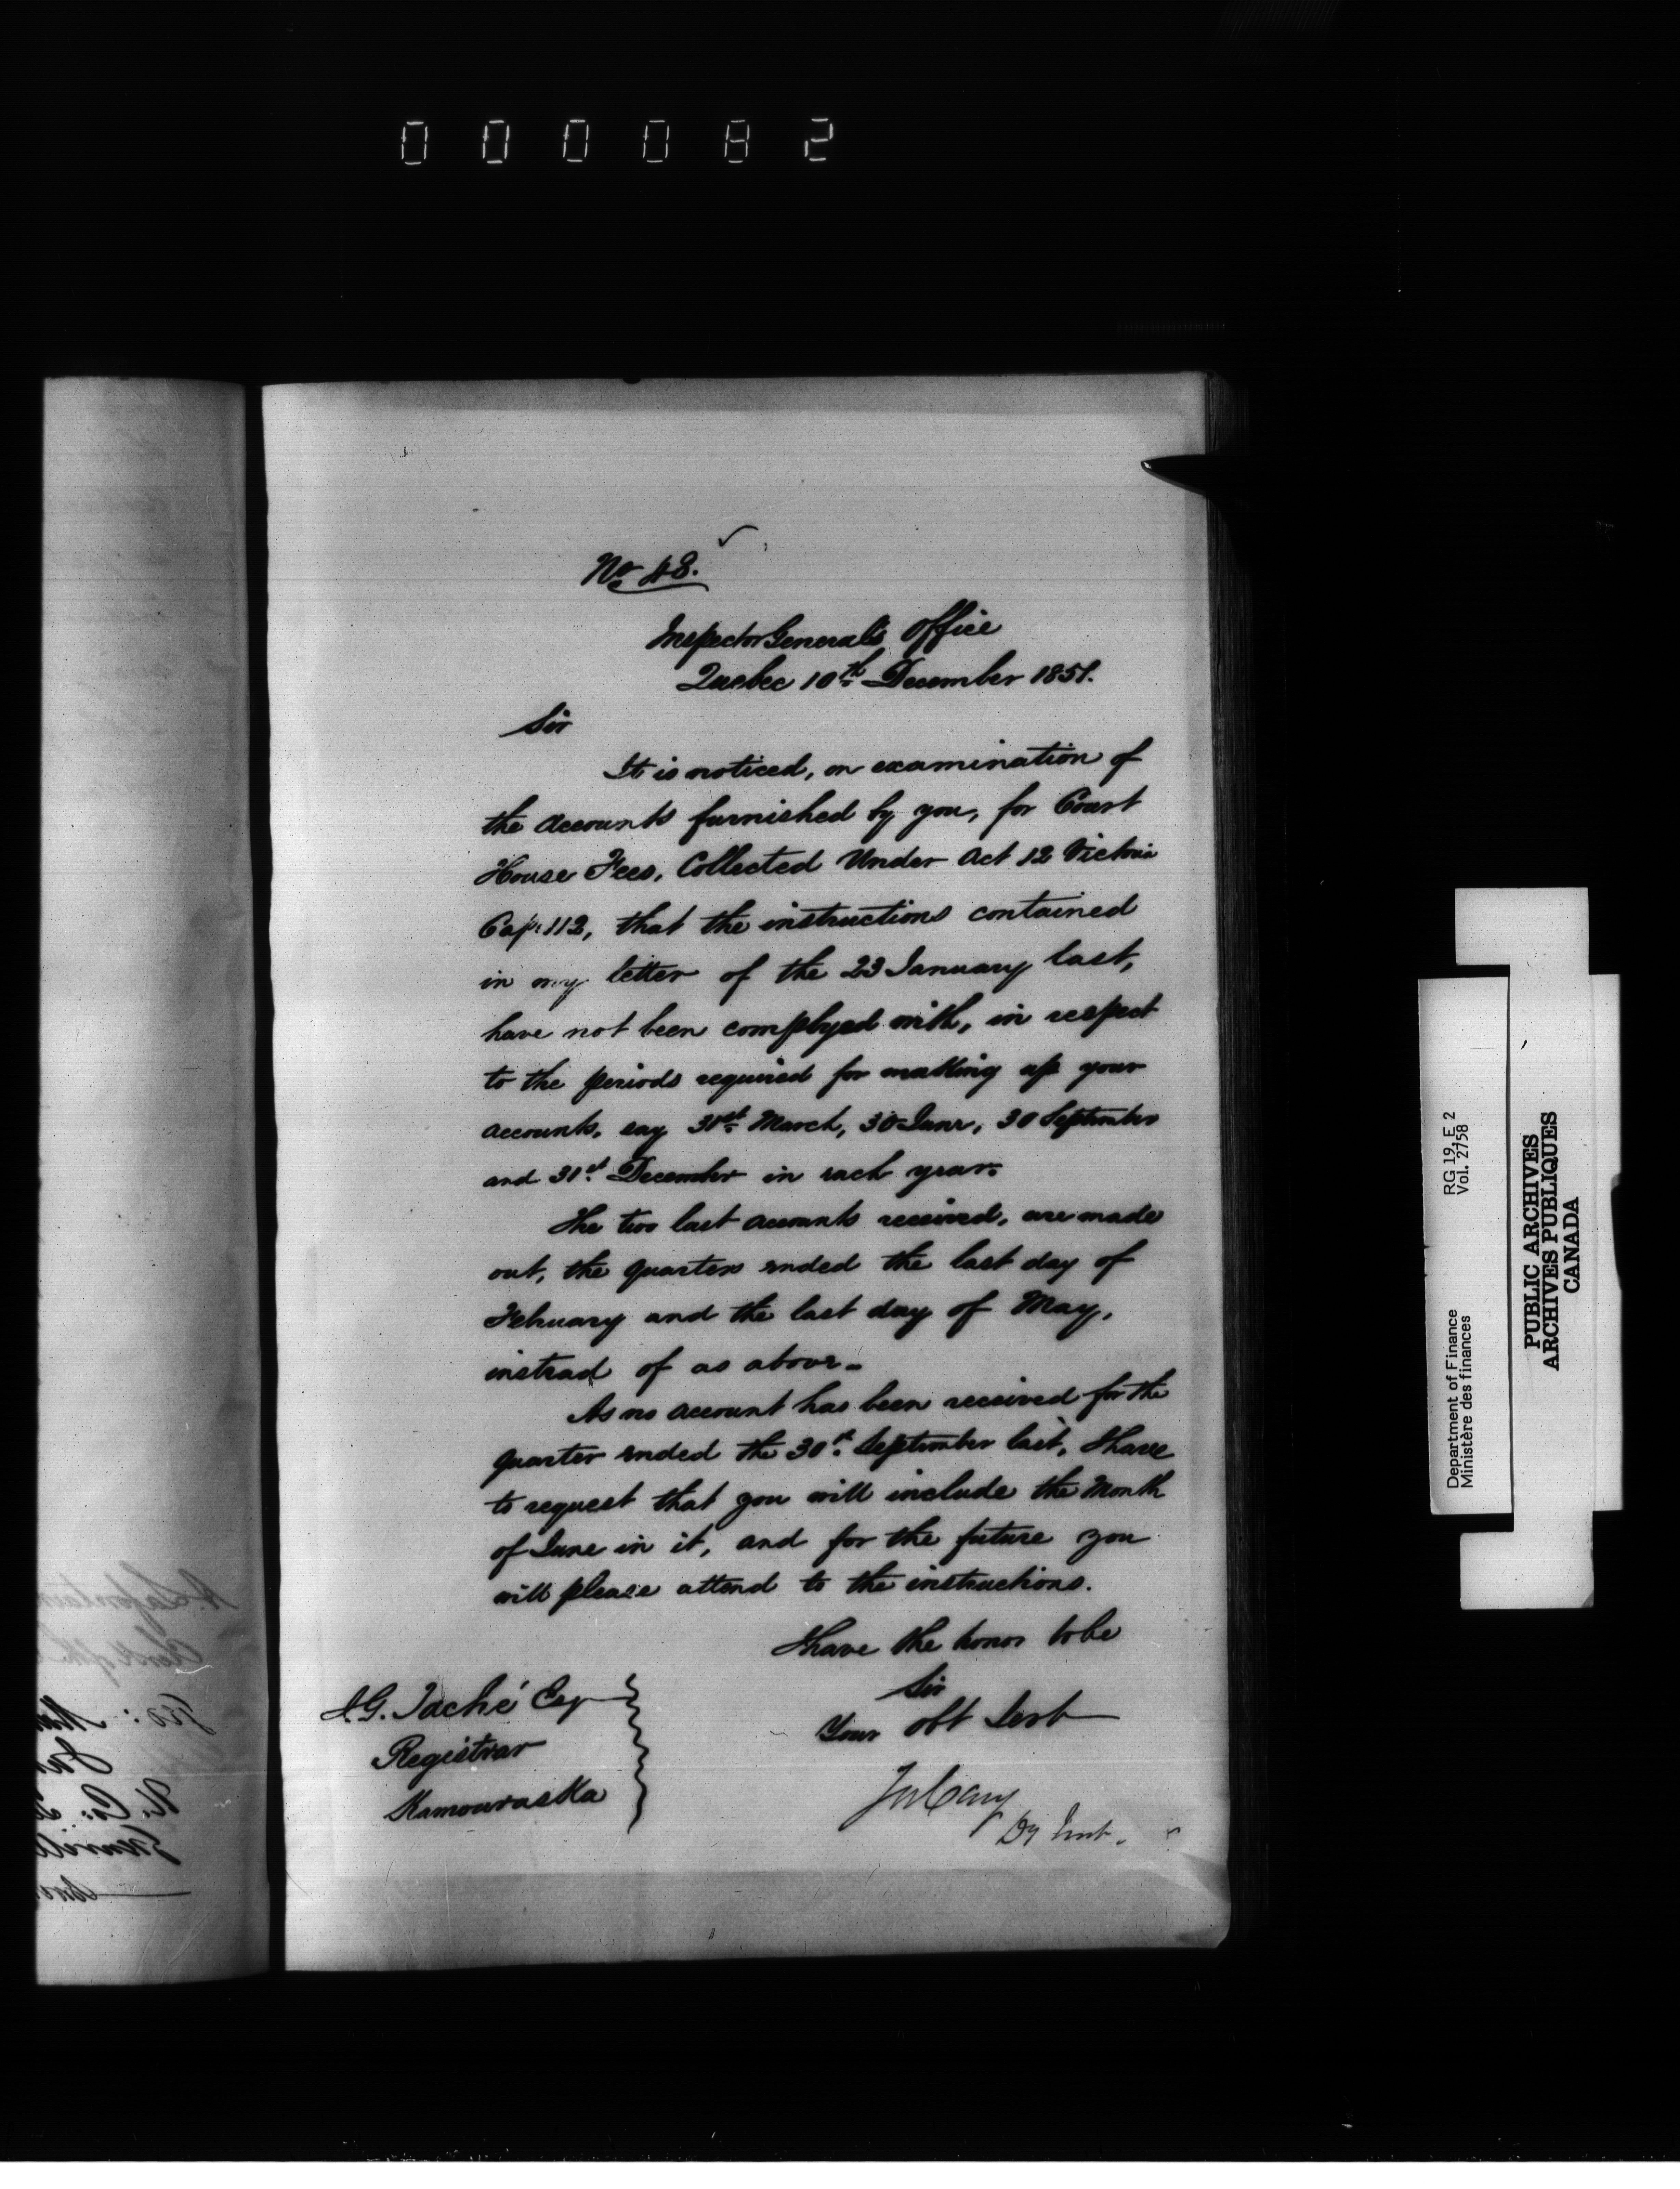 000082
No 48.
Inspector General's Office
Quebec 10th December 1851.
Sir
It is noticed, on examination of
the accounts furnished by you, for Court
House Fees, Collected Under Act 12 Victoria
Cap. 112, that the instructions contained
in my letter of the 23 January last,
have not been complyed with, in respect
to the periods required for making up your
accounts, say 31st March, 30 June, 30 September
and 31st December in each year.
The two last accounts received, are made
out, the quarters ended the last day of
February and the last day of May,
instead of as above.
As no account has been received for the
quarter ended the 30th September last, I have
to request that you will include the Month
of June in it, and for the future you
will please attend to the instructions.
I have the honor to be
Sir
Your obt Sert
Jos Cary
Dy
J.G. Taché Esq
Registrar
Kamouraska
Department of Finance RG 19, E 2
Ministère des finances Vol. 2758
PUBLIC ARCHIVES
ARCHIVES PUBLIQUES
CANADA